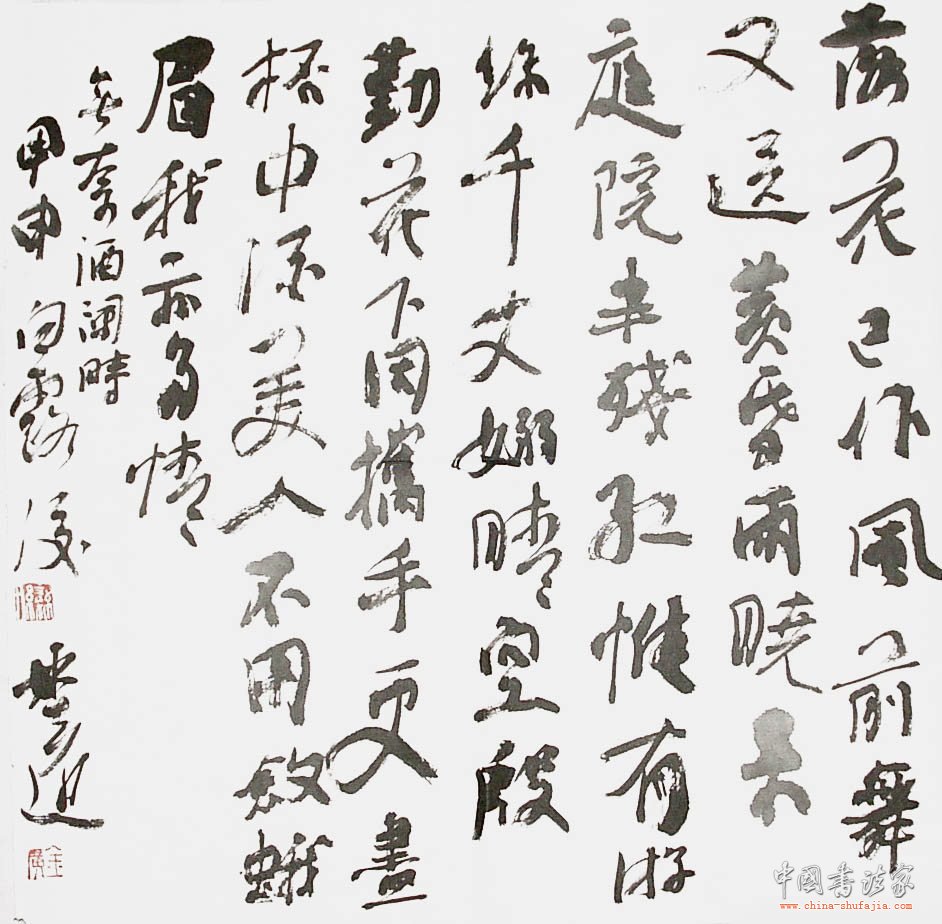 落花已作風前舞
又送黄昏雨曉来
庭院半殘紅惟有游
絲千丈嫋晴空殷
勤花下同攜手更盡
杯中酒美人不用斂蛾
眉我亦多情
無奈酒闌時
甲申白露後
中國書法家
www.china-shufajia.com